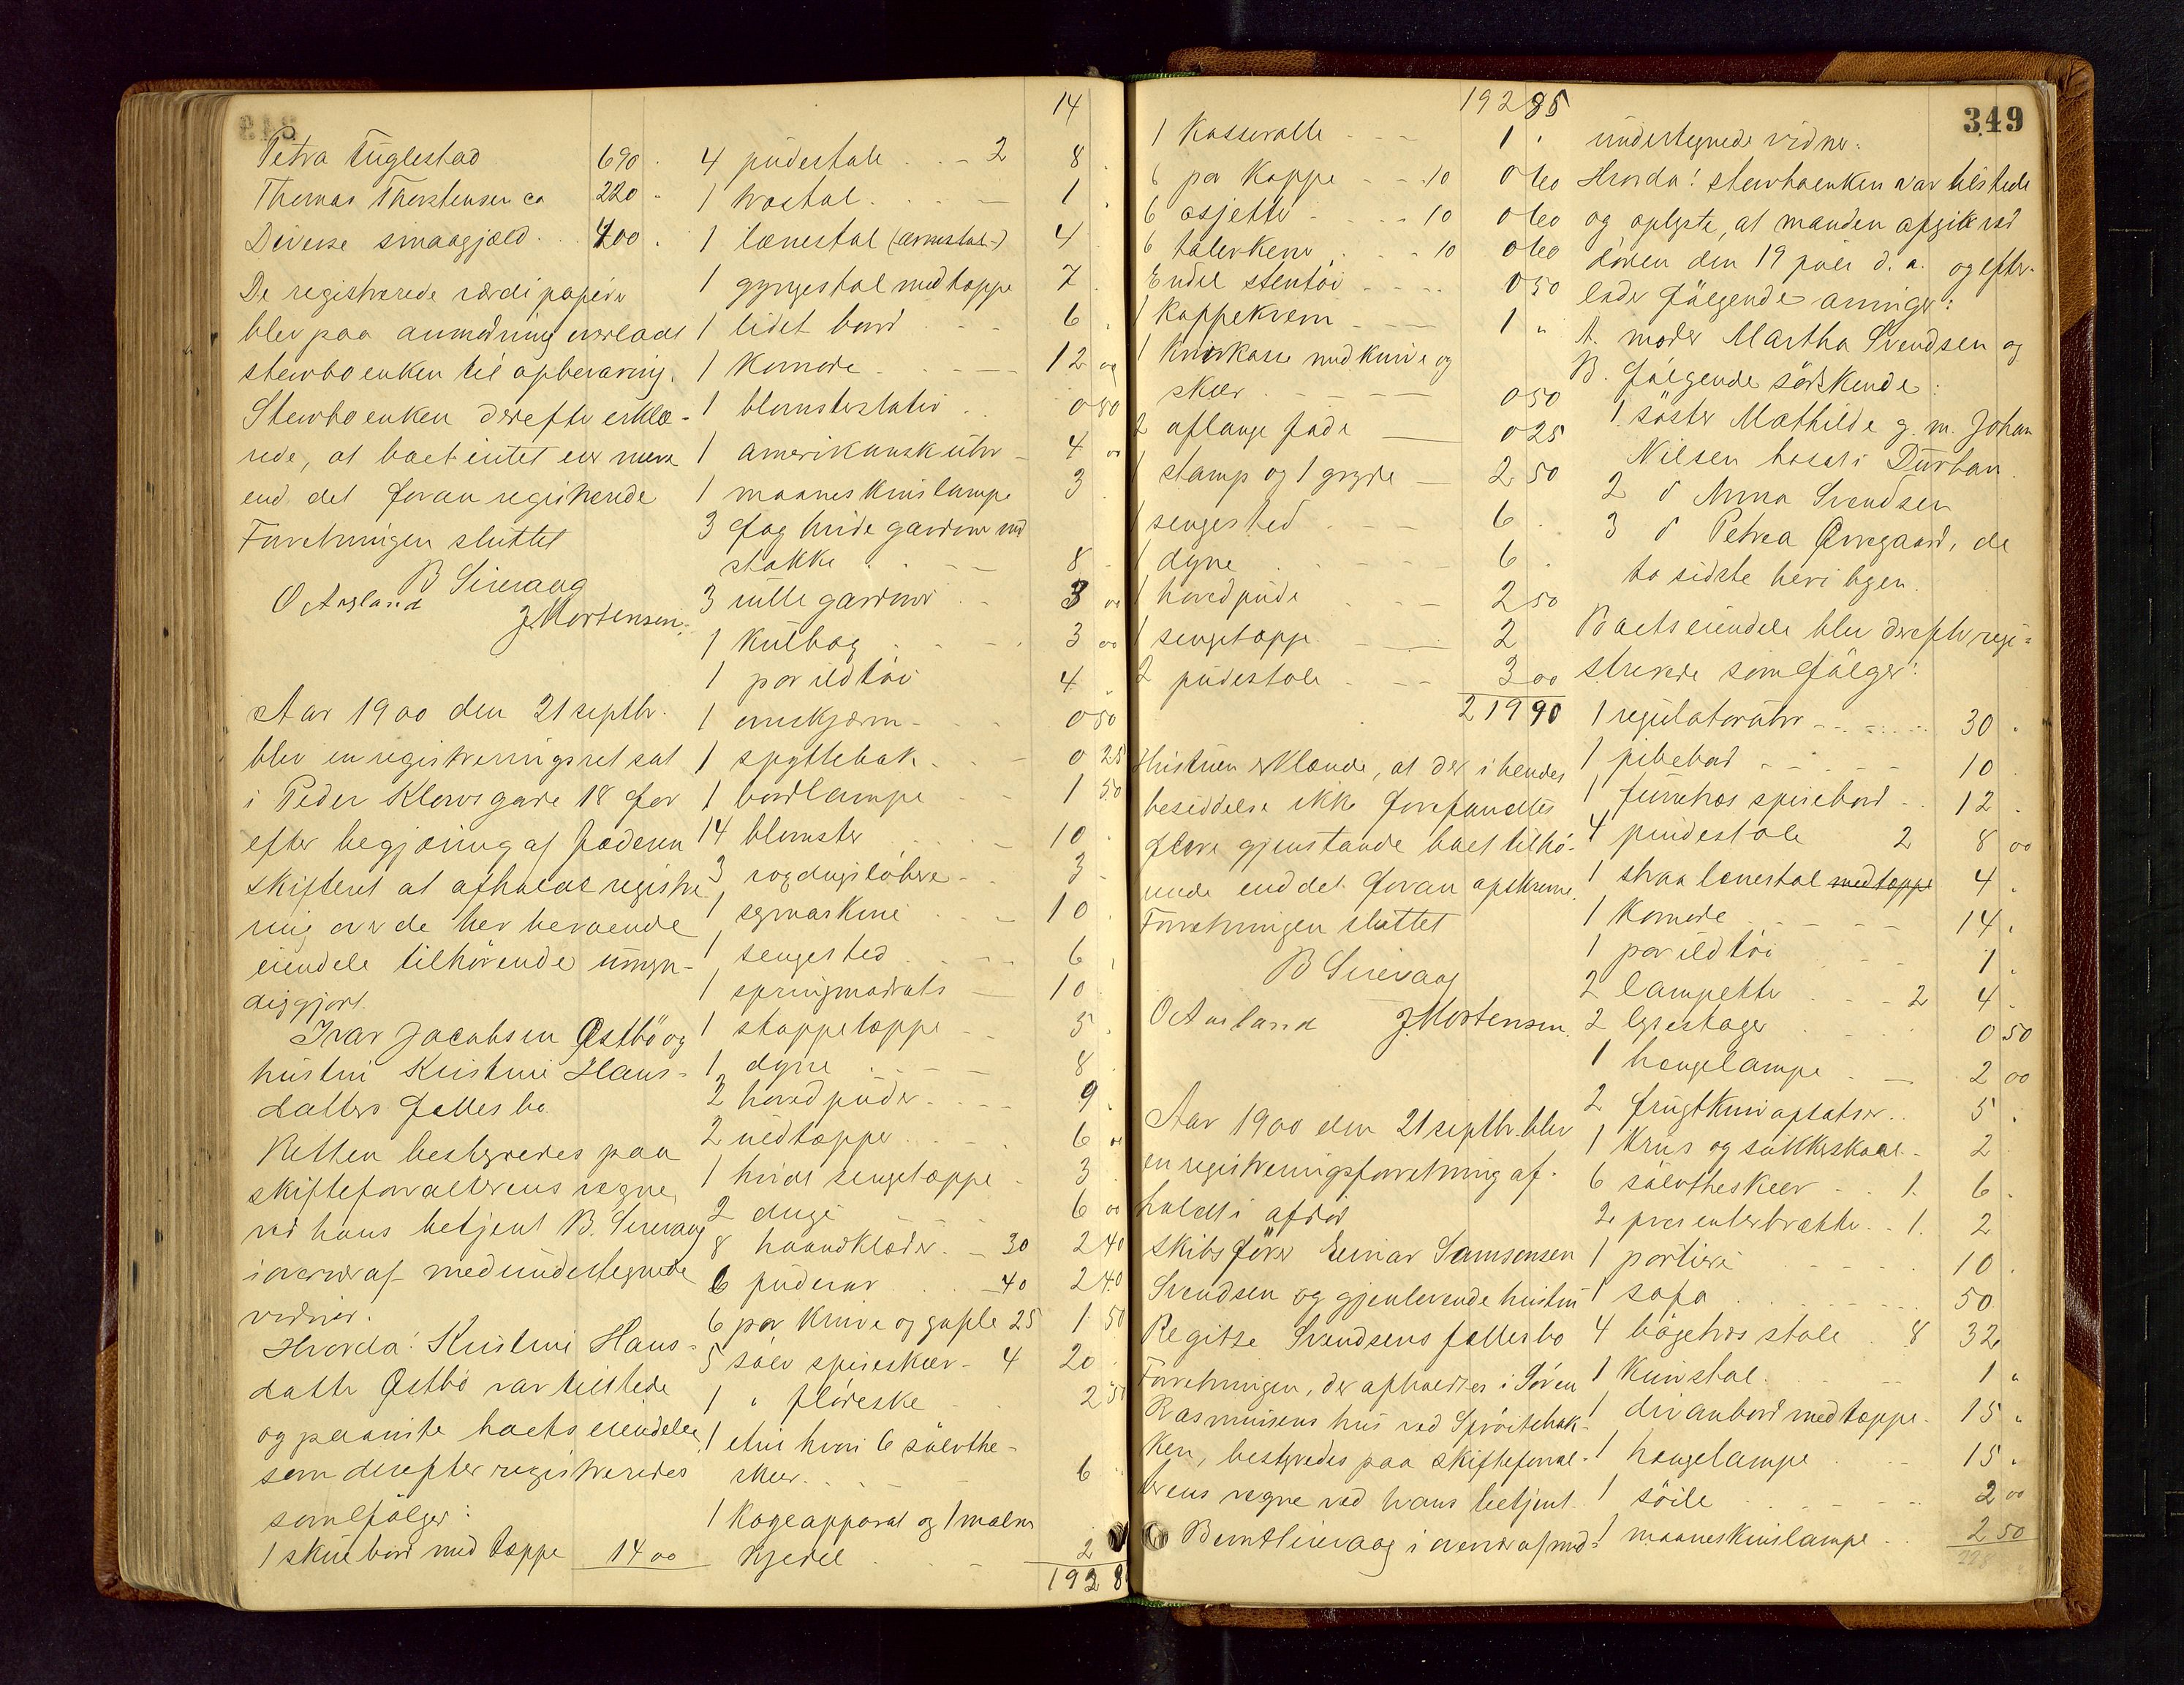 Petra Tuglestad 690 "
Thomas Thorstensen ca 220 "
Diverse smaagjæld . . 400 "
De registrerede værdipapirer
blev paa anmodning overladt
stervboenken til opbevaring.
Stervboenken derefter erklæ-
rede, at boet intet eier mere
end det foran registrerede
Forretningen sluttet
B Sirevaag
O Aasland
J. Mortensen.
Aar 1900 den 21 septbr.
blev en registreringsret sat
i Peder Klows gade 18 for
efter begjæring af fæderen
skifteret at afholde registre
ring over de her beroende
eiendele tilhørende umyn-
diggjort
Ivar Jacobsen Østbö og
hustru Kristine Hans-
datters fælles bo.
Retten bestyredes paa
skifteforvalterens vegne
ved hans betjent B. Sirevaag
i overvær af medundertegnede
vidner.
Hvorda! Kristine Hans-
datter Østbö var tilstede
og paaviste boets eiendele
som derefter registreredes
som følger:
1 skriebord med tæppe 14 00
14
4 pudestole . . - 2 8 "
1 træstol . . . - 1 "
1 lænestol (ærmestol) 4
1 gyngestol med tæppe 7
1 lidet bord . . - 6 "
1 Komode . . - 12 00
1 blomsterstativ . . 0 80
1 amerikansk uhr - 4 00
1 maaneskinslampe 3 "
3 fag hvide gardiner med
stokke . . . 8 "
3 rullegardiner . . 3 00
1 Kulbog . . - 3 00
1 par ildtöi 4 "
1 ovnskjærm - 0 50
1 spyttebak . . - 0 25
1 bordlampe . . - 1 50
14 blomster . . . - 10 "
3 vogdugslöbere - 3 -
1 symaskine . . - 10 "
1 sengested . . . 6 "
1 springmadrats - 10
1 stoppetæppe - 5 "
1 dyne . . - - 8 "
2 hovedpuder . . - 9 "
2 uldtæpper . . . 6 00
1 hvidt sengetæppe - 3
2 duge . . - 6 00
8 haandklæder . - 30 2 40
6 pudevar . . - 40 2 40
6 par knive og gafle 25 1 50
5 sölv spiseskeer - 4 20 "
1 " flödeske . . 2 50
1 etui hvori 6 sölvthe-
skeer . . . 6 "
1 Kogeapparat og 1 malm
kjedel . . - 2
192 8
192 85
1 Kasserolle - - - 1 "
6 par Koppe - - 10 0 60
6 asjetter - - - 10 0 60
6 talerkener . . - 10 0 60
Endel stentöi . . . 0 50
1 Kaffekvern - - 1 "
1 knivkasse med knive og
skeer . . - - 0 50
2 aflange fade - 0 25
1 stamp og 1 gryde - 2 50
1 sengested . . - 6 "
1 dyne . . - - 6 "
1 hovedpude . . - 2 50
1 sengetæppe . - 2
2 pudestole . . - 3 00
219 90
Hustruen erklærede, at der i hendes
besiddelse ikke forefandtes
flere gjenstande boet tilhö-
rende end det foran opskrevne.
Forretningen sluttet
B Sirevaag
O Aasland J. Mortensen.
Aar 1900 den 21 septbr. blev
en registreringsforretning af-
holdt i afdød
skibsfører Einar Samsonsen
Svendsen og gjenlevende hustru
Regitze Svendsens fælles bo
Forretningen, der afholdtes i Sören
Rasmussens hus ved Spröitebak-
ken, bestyredes paa skifteforval-
terens vegne ved hans betjent
Bernt Sirevaag i overvær af med-
349
undertegnede vidner.
Hvorda! stervboenken var tilstede
og oplyste, at manden afgik ved
døden den 19 juli d. a. og efter-
lader følgende arvinger:
A. moder Martha Svendsen og
B. følgende söskende:
1. söster Mathilde g. m. Johan
Nilsen bosat i Durban
2 d Anna Svendsen
3 d Petrea Ørregaard, de
to sidste her i byen.
Boets eiendele blev derefter regi-
strerede som følger:
1 regulatoruhr - - - - 30 "
1 pibebord - - - - 10
1 furutræs spisebord - 12 "
4 pindestole 2 8 00
1 straa lænestol med tæppe 4 "
1 Komode - - - - 14 "
1 par ildtöi . . . 1 "
2 lampetter . . - 2 4 "
2 lysestager . . . 0 50
1 hængelampe . - 2 00
2 frugtknivopsatser . . 5 "
1 krus og sukkerskaal - 2
6 sölvtheskeer - - 1. 6 "
2 presenterbrætter . . 1. 2
1 portiere . . . . 10 "
1 sofa . . . . . 50
4 bøgetræs stole . 8 32
1 Kurvstol . . . - 1 "
1 divanbord med tæppe . 15 "
1 hængelampe . - 15 "
1 söile . . . - 2 00
1 maaneskinslampe . . 2 50
228